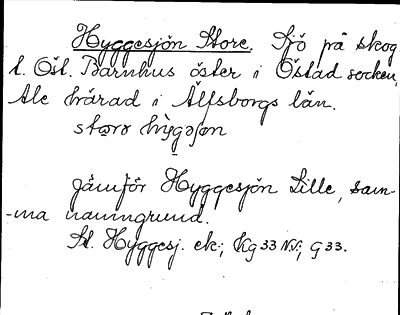 Hyggesjön Store. Sjö på skog
t. Öst. Barnhus öster i Östad socken,
Ale härad i Älfsborgs län.
Jämför Hyggesjön Lille, sam-
-ma namngrund.
St. Hyggesj. ek; Kg 33 NV; G 33.